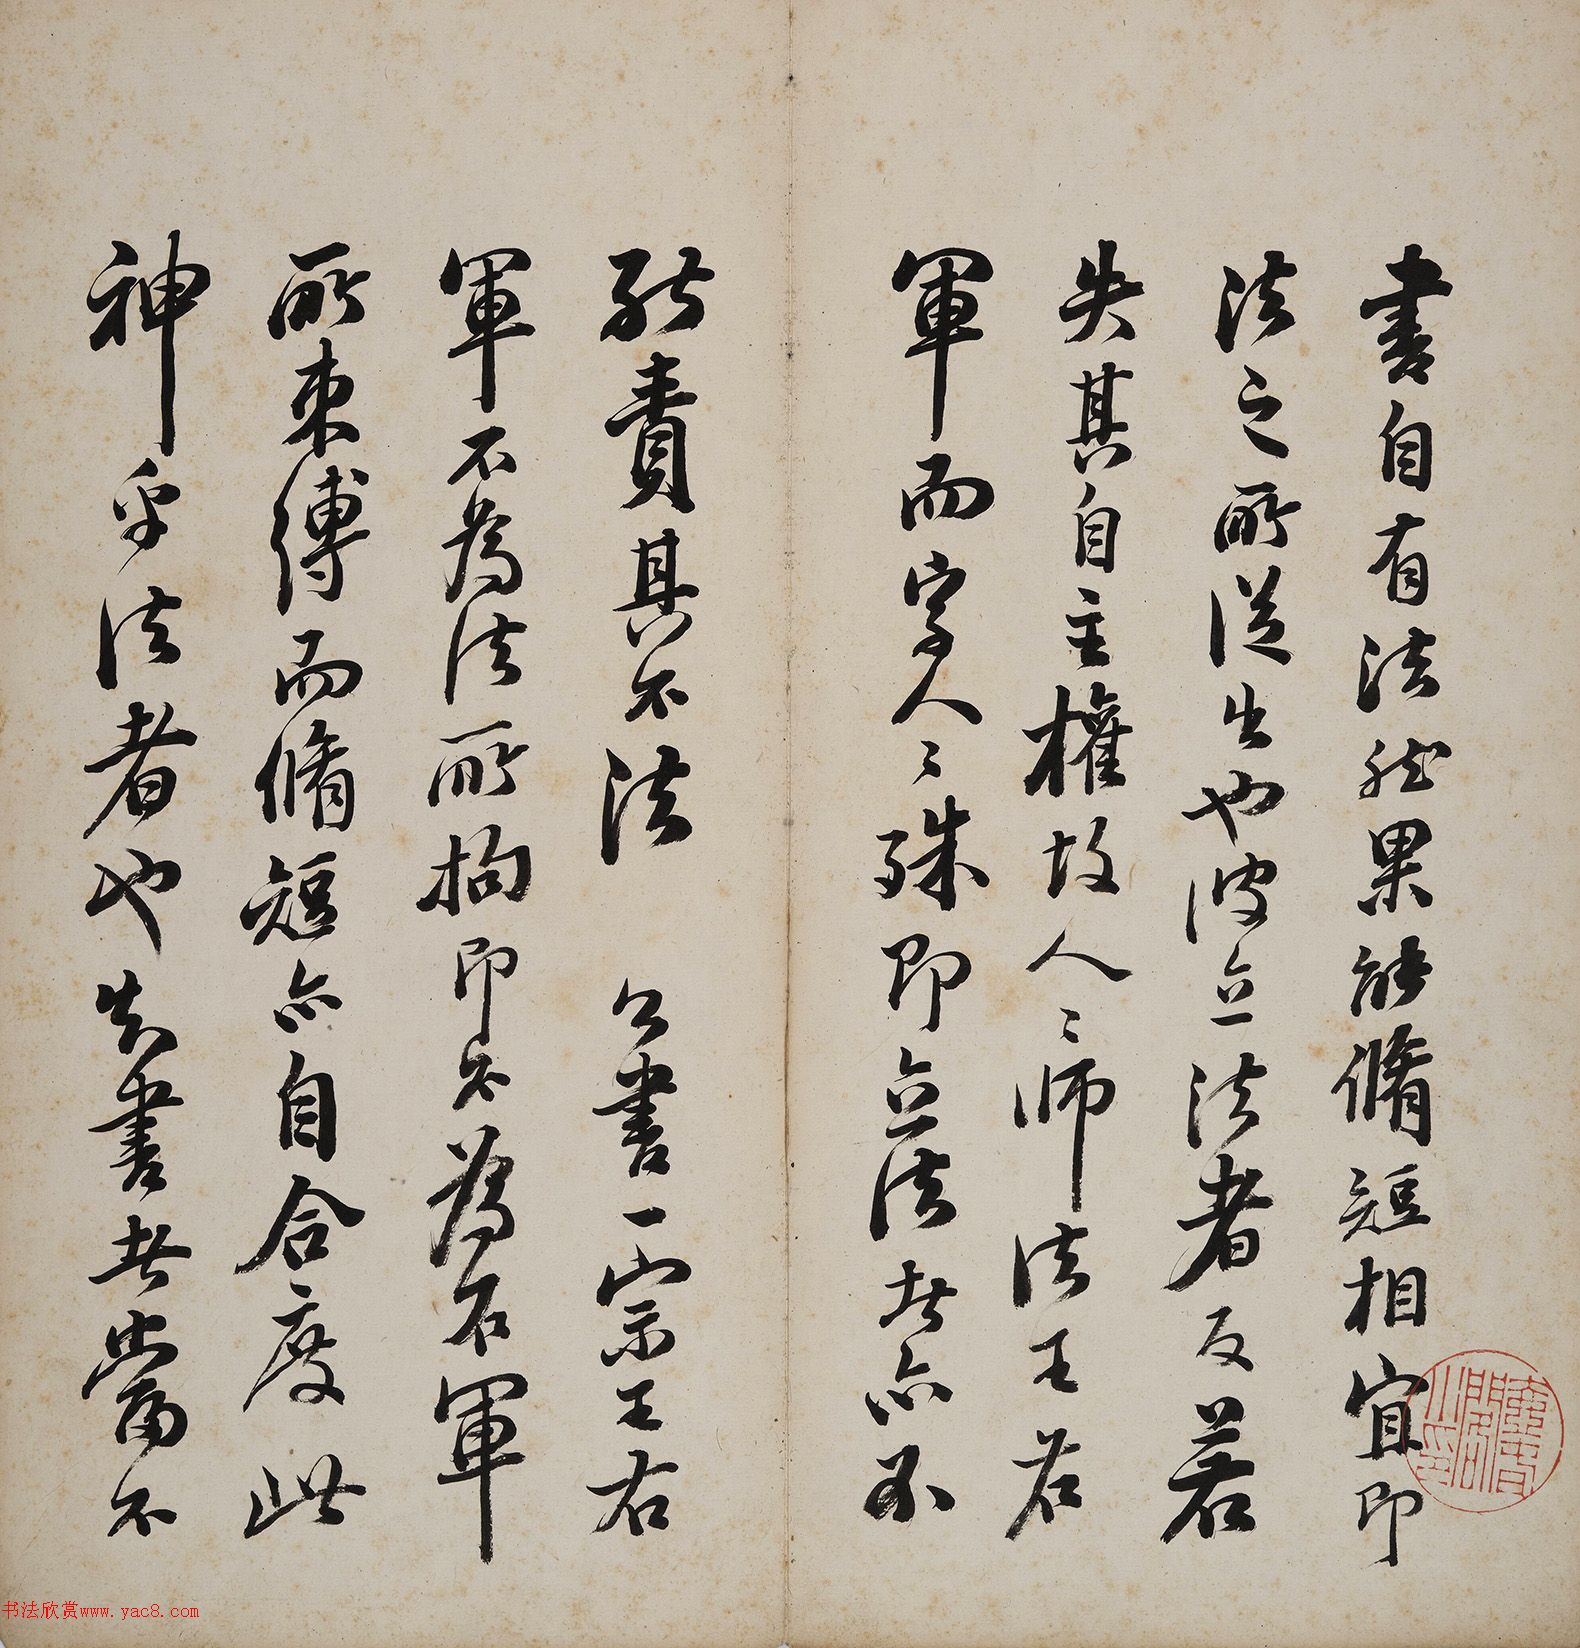 書自有法然果能脩短相宜即
法之所從出也彼立法者反若
失其自主權故人々師法王右
軍而字人々殊即立法者亦不
能責其不法　公書一宗王右
軍不為法所拘即不為右軍
所束縛而脩短亦自合度此
神乎法者也知書者當不
书法欣赏www.yac8.com